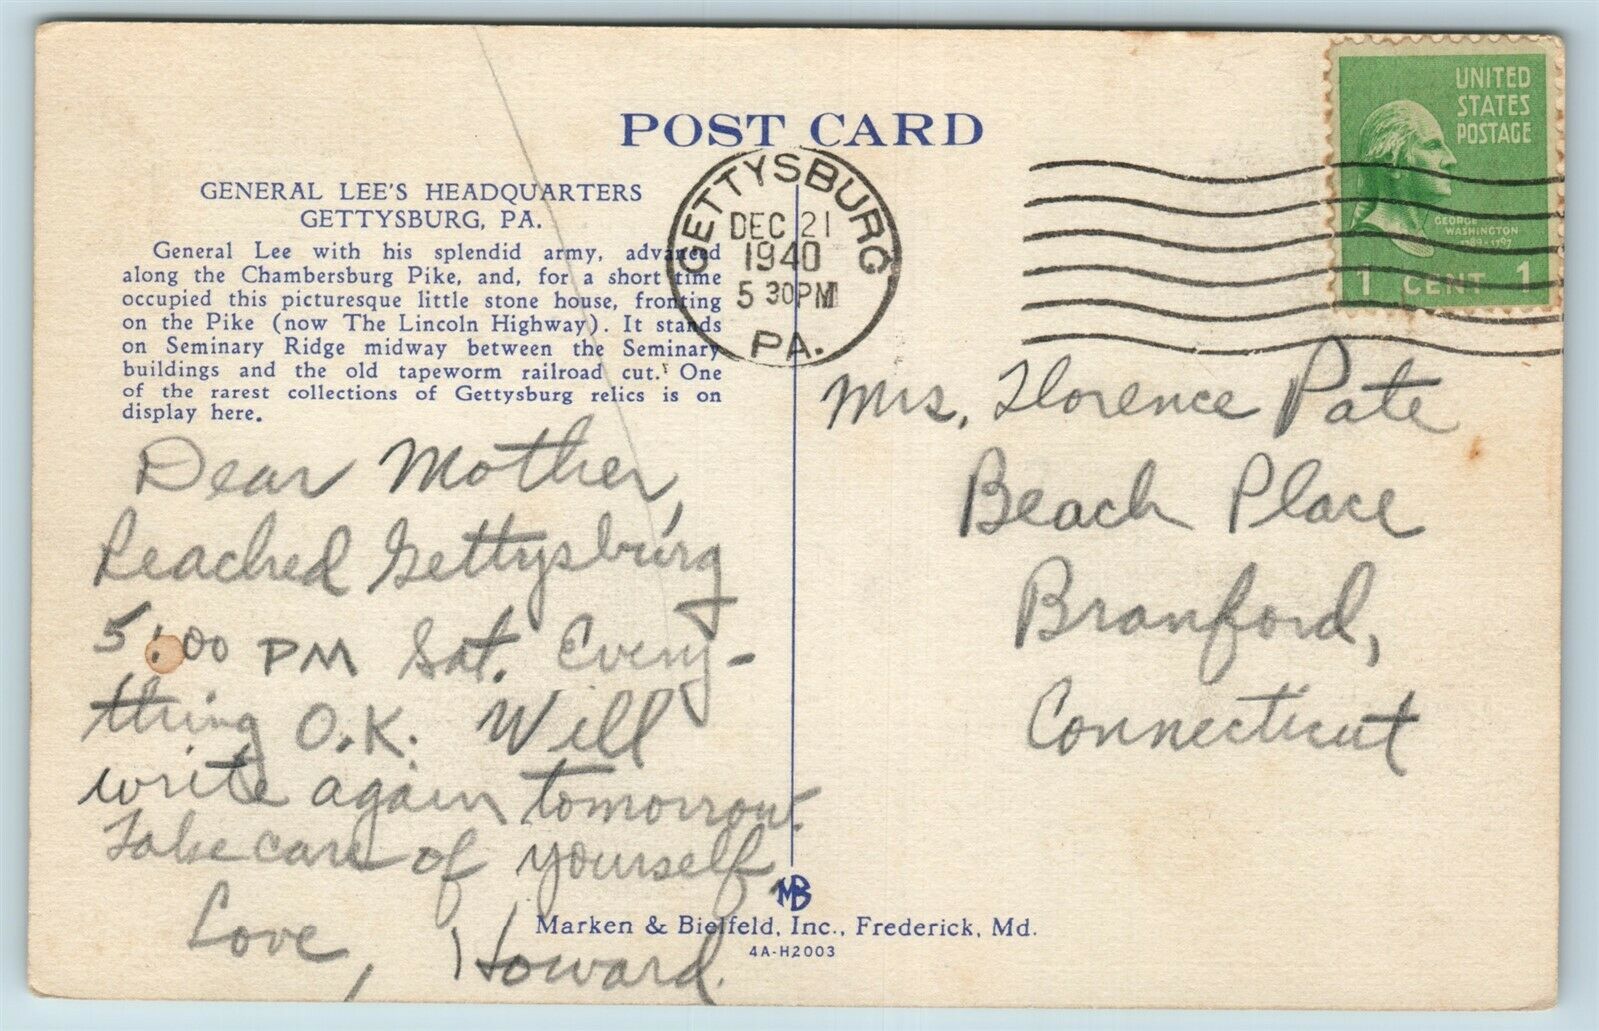 POST CARD
UNITED
STATES
POSTAGE
GEORGE
WASHINGTON
1789-1797
1 CENT 1
GETTYSBURG
DEC 21
1940
5 30PM
PA.
GENERAL LEE'S HEADQUARTERS
GETTYSBURG, PA.
General Lee with his splendid army, advanced
along the Chambersburg Pike, and, for a short time
occupied this picturesque little stone house, fronting
on the Pike (now The Lincoln Highway). It stands
on Seminary Ridge midway between the Seminary
buildings and the old tapeworm railroad cut. One
of the rarest collections of Gettysburg relics is on
display here.
Dear Mother,
Reached Gettysburg
5:00 PM Sat. Every-
thing O.K. Will
write again tomorrow.
Take care of yourself,
Love, Howard.
Mrs. Florence Pate
Beach Place
Branford,
Connecticut
MB
Marken & Bielfeld, Inc., Frederick, Md.
4A-H2003